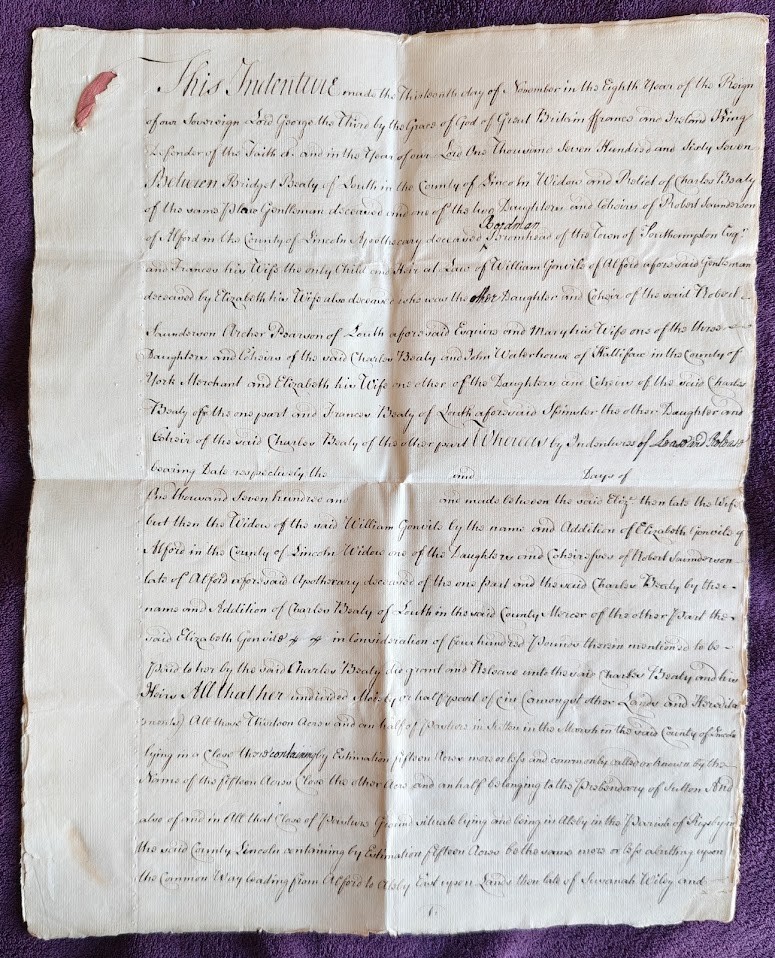 This Indenture made the Thirteenth day of November in the Eighth Year of the Reign
of our Sovereign Lord George the Third by the Grace of God of Great Britain ffrance and Ireland King
Defender of the Faith &c. and in the Year of our Lord One Thousand Seven Hundred and Sixty Seven
Between Bridget Beaty of Louth in the County of Lincoln Widow and Relict of Charles Beaty
of the same Place Gentleman deceased and one of the two Daughters and Coheirs of Robert Saunderson
Boadman
of Alford in the County of Lincoln Apothecary deceased Bromhead of the Town of Esqr.
and Frances his Wife the only Child and Heir at Law of William Gonvile of Alford aforesaid Gentleman
deceased by Elizabeth his Wife also deceased who was the other Daughter and Coheir of the said Robert
Saunderson Archer Pearson of Louth aforesaid Esquire and Mary his Wife one of the three
Daughters and Coheirs of the said Charles Beaty and John Waterhouse of Hallifax in the County of
York Merchant and Elizabeth his Wife one other of the Daughters and Coheirs of the said Charles
Beaty of the one part and Frances Beaty of Louth aforesaid Spinster the other Daughter and
Coheir of the said Charles Beaty of the other part Whereas by Indentures of Lease and Release
bearing Date respectively the and Days of
One Thousand Seven hundred and and made between the said Eliz. then late the Wife
but then the Widow of the said William Gonvile by the name and Addition of Elizabeth Gonvile of
Alford in the County of Lincoln Widow one of the Daughters and Coheiresses of Robert Saunderson
late of Alford aforesaid Apothecary deceased of the one part and the said Charles Beaty by the
name and Addition of Charles Beaty of Louth in the said County Mercer of the other Part the
said Elizabeth Gonvile in Consideration of hundred Pounds therein mentioned to be
Paid to her by the said Charles Beaty did grant and Release unto the said Charles Beaty and his
Heirs All that her undivided Moiety or half part of in (amongst other Lands and Heredita
ments) All those Thirteen Acres and an half of Pasture in Sutton in the Marsh in the said County of Lincoln
lying in a Close there containing by Estimation fifteen Acres more or less and commonly called or known by the
Name of the fifteen Acres Close the other Acre and an half belonging to the Prebendary of Sutton And
also of and in All that Close of Pasture Ground situate lying and being in Alsby in the Parish of Rigsby in
the said County Lincoln containing by Estimation fifteen Acres be the same more or less abutting upon
the Common Way leading from Alford to Alsby East upon Lands then late of Susanah Wiley and